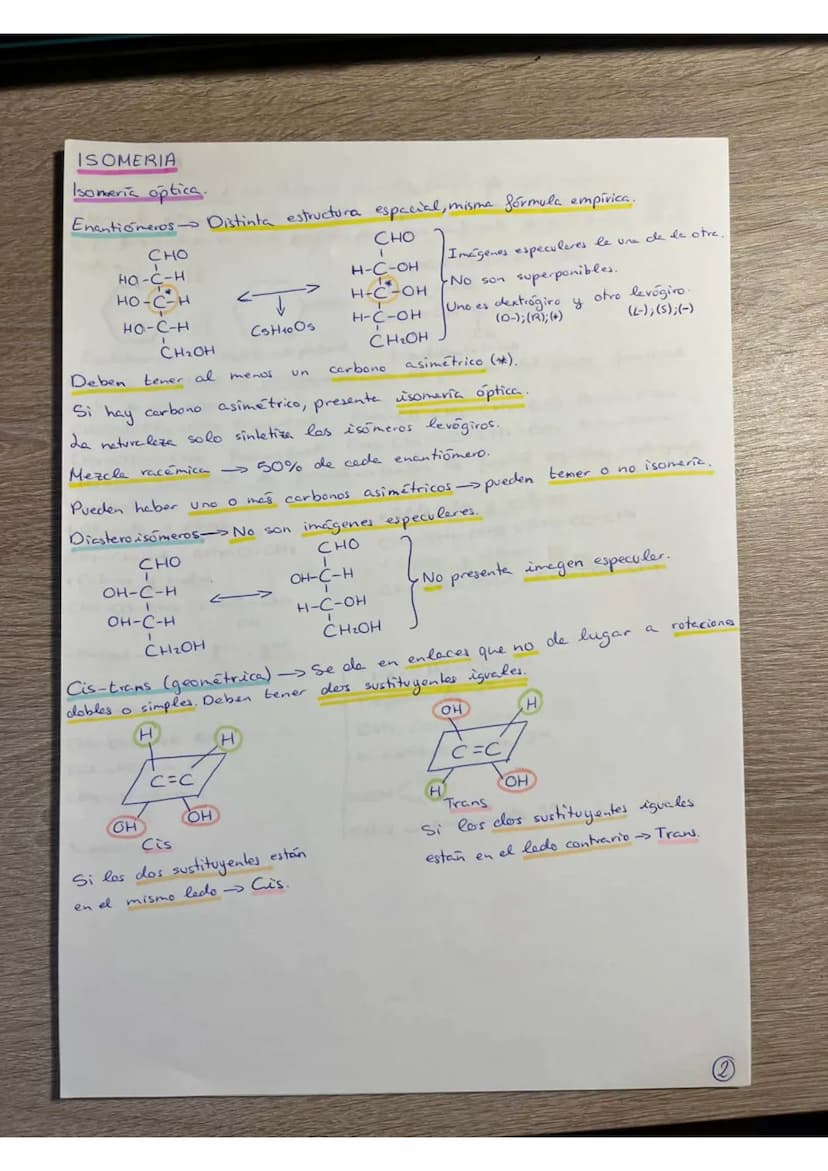 ISOMERIA
Isomería óptica.
Enantiómeros → Distinta estructura espacial, misma fórmula empírica.
CHO
HO-C-H
HO-C*-H
HO-C-H
CH₂OH
C5H10O5
CHO
H-C-OH
H-C*-OH
H-C-OH
CH₂OH
Imágenes especulares la una de la otra.
No son superponibles.
Uno es dextrógiro y otro levógiro.
(D-);(R);(+) (L-);(S);(-)
Deben tener al menos un carbono asimétrico (*).
Si hay carbono asimétrico, presenta isomería óptica.
La naturaleza solo sintetiza los isómeros levógiros.
Mezcla racémica → 50% de cada enantiómero.
Pueden haber uno o más carbonos asimétricos → pueden tener o no isomería.
Diasteroisómeros → No son imágenes especulares.
CHO
OH-C-H
OH-C-H
CH₂OH
CHO
OH-C-H
H-C-OH
CH₂OH
No presenta imagen especular.
Cis-trans (geométrica) → Se da en enlaces que no de lugar a rotaciones
dobles o simples. Deben tener dos sustituyentes iguales.
H H
C=C
OH OH
Cis
Si los dos sustituyentes están
en el mismo lado → Cis.
OH H
C=C
H OH
Trans
Si los dos sustituyentes iguales
están en el lado contrario → Trans.
2